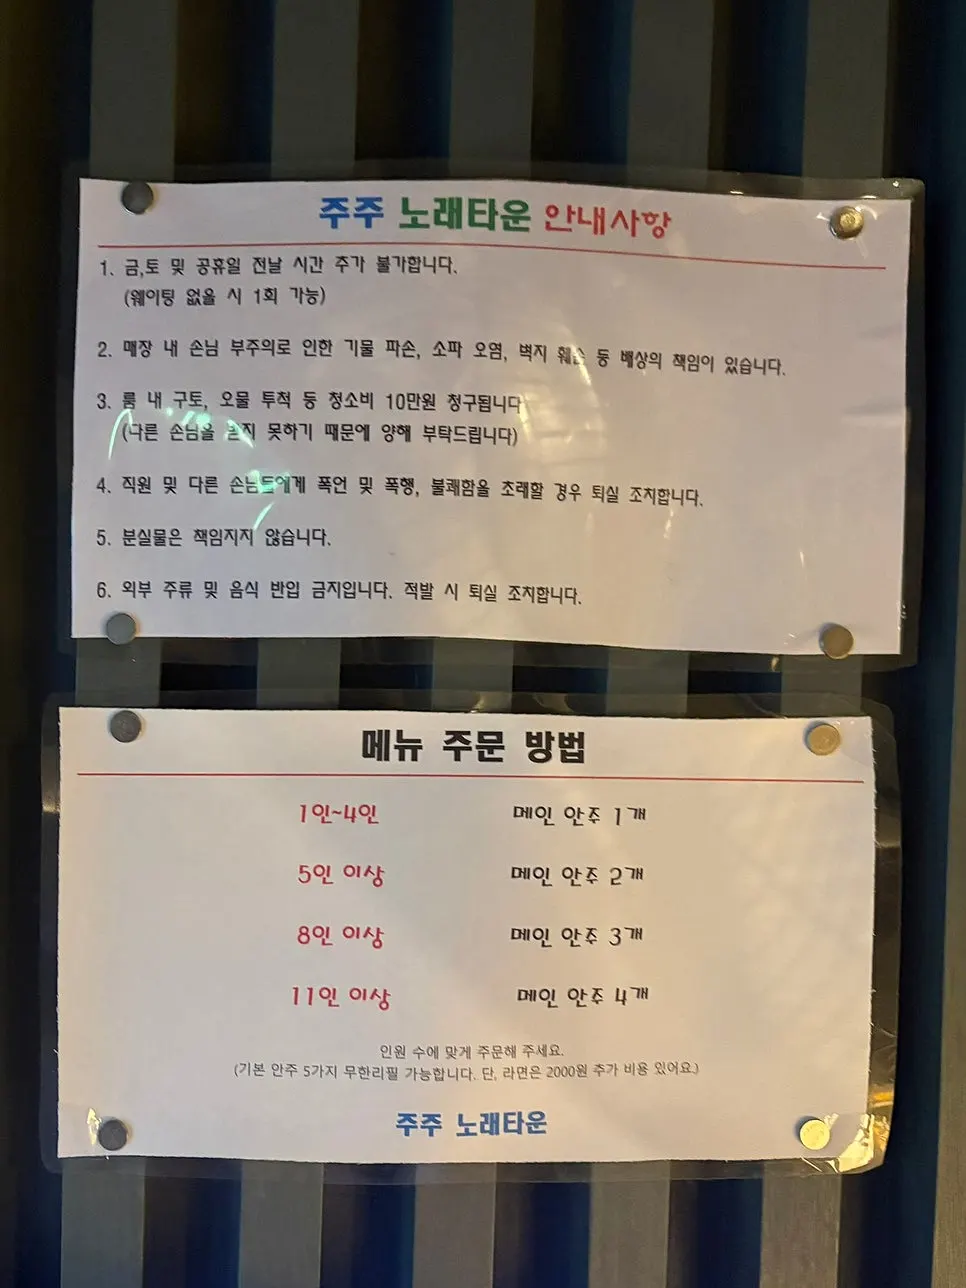 주주 노래타운 안내사항
1. 금,토 및 공휴일 전날 시간 추가 불가합니다.
(웨이팅 없을 시 1회 가능)
2. 매장 내 손님 부주의로 인한 기물 파손, 소파 오염, 벽지 훼손 등 배상의 책임이 있습니다.
3. 룸 내 구토, 오물 투척 등 청소비 10만원 청구됩니다
(다른 손님을 받지 못하기 때문에 양해 부탁드립니다)
4. 직원 및 다른 손님들에게 폭언 및 폭행, 불쾌함을 초래할 경우 퇴실 조치합니다.
5. 분실물은 책임지지 않습니다.
6. 외부 주류 및 음식 반입 금지입니다. 적발 시 퇴실 조치합니다.
메뉴 주문 방법
1인~4인 메인 안주 1개
5인 이상 메인 안주 2개
8인 이상 메인 안주 3개
11인 이상 메인 안주 4개
인원 수에 맞게 주문해 주세요.
(기본 안주 5가지 무한리필 가능합니다. 단, 라면은 2000원 추가 비용 있어요.)
주주 노래타운